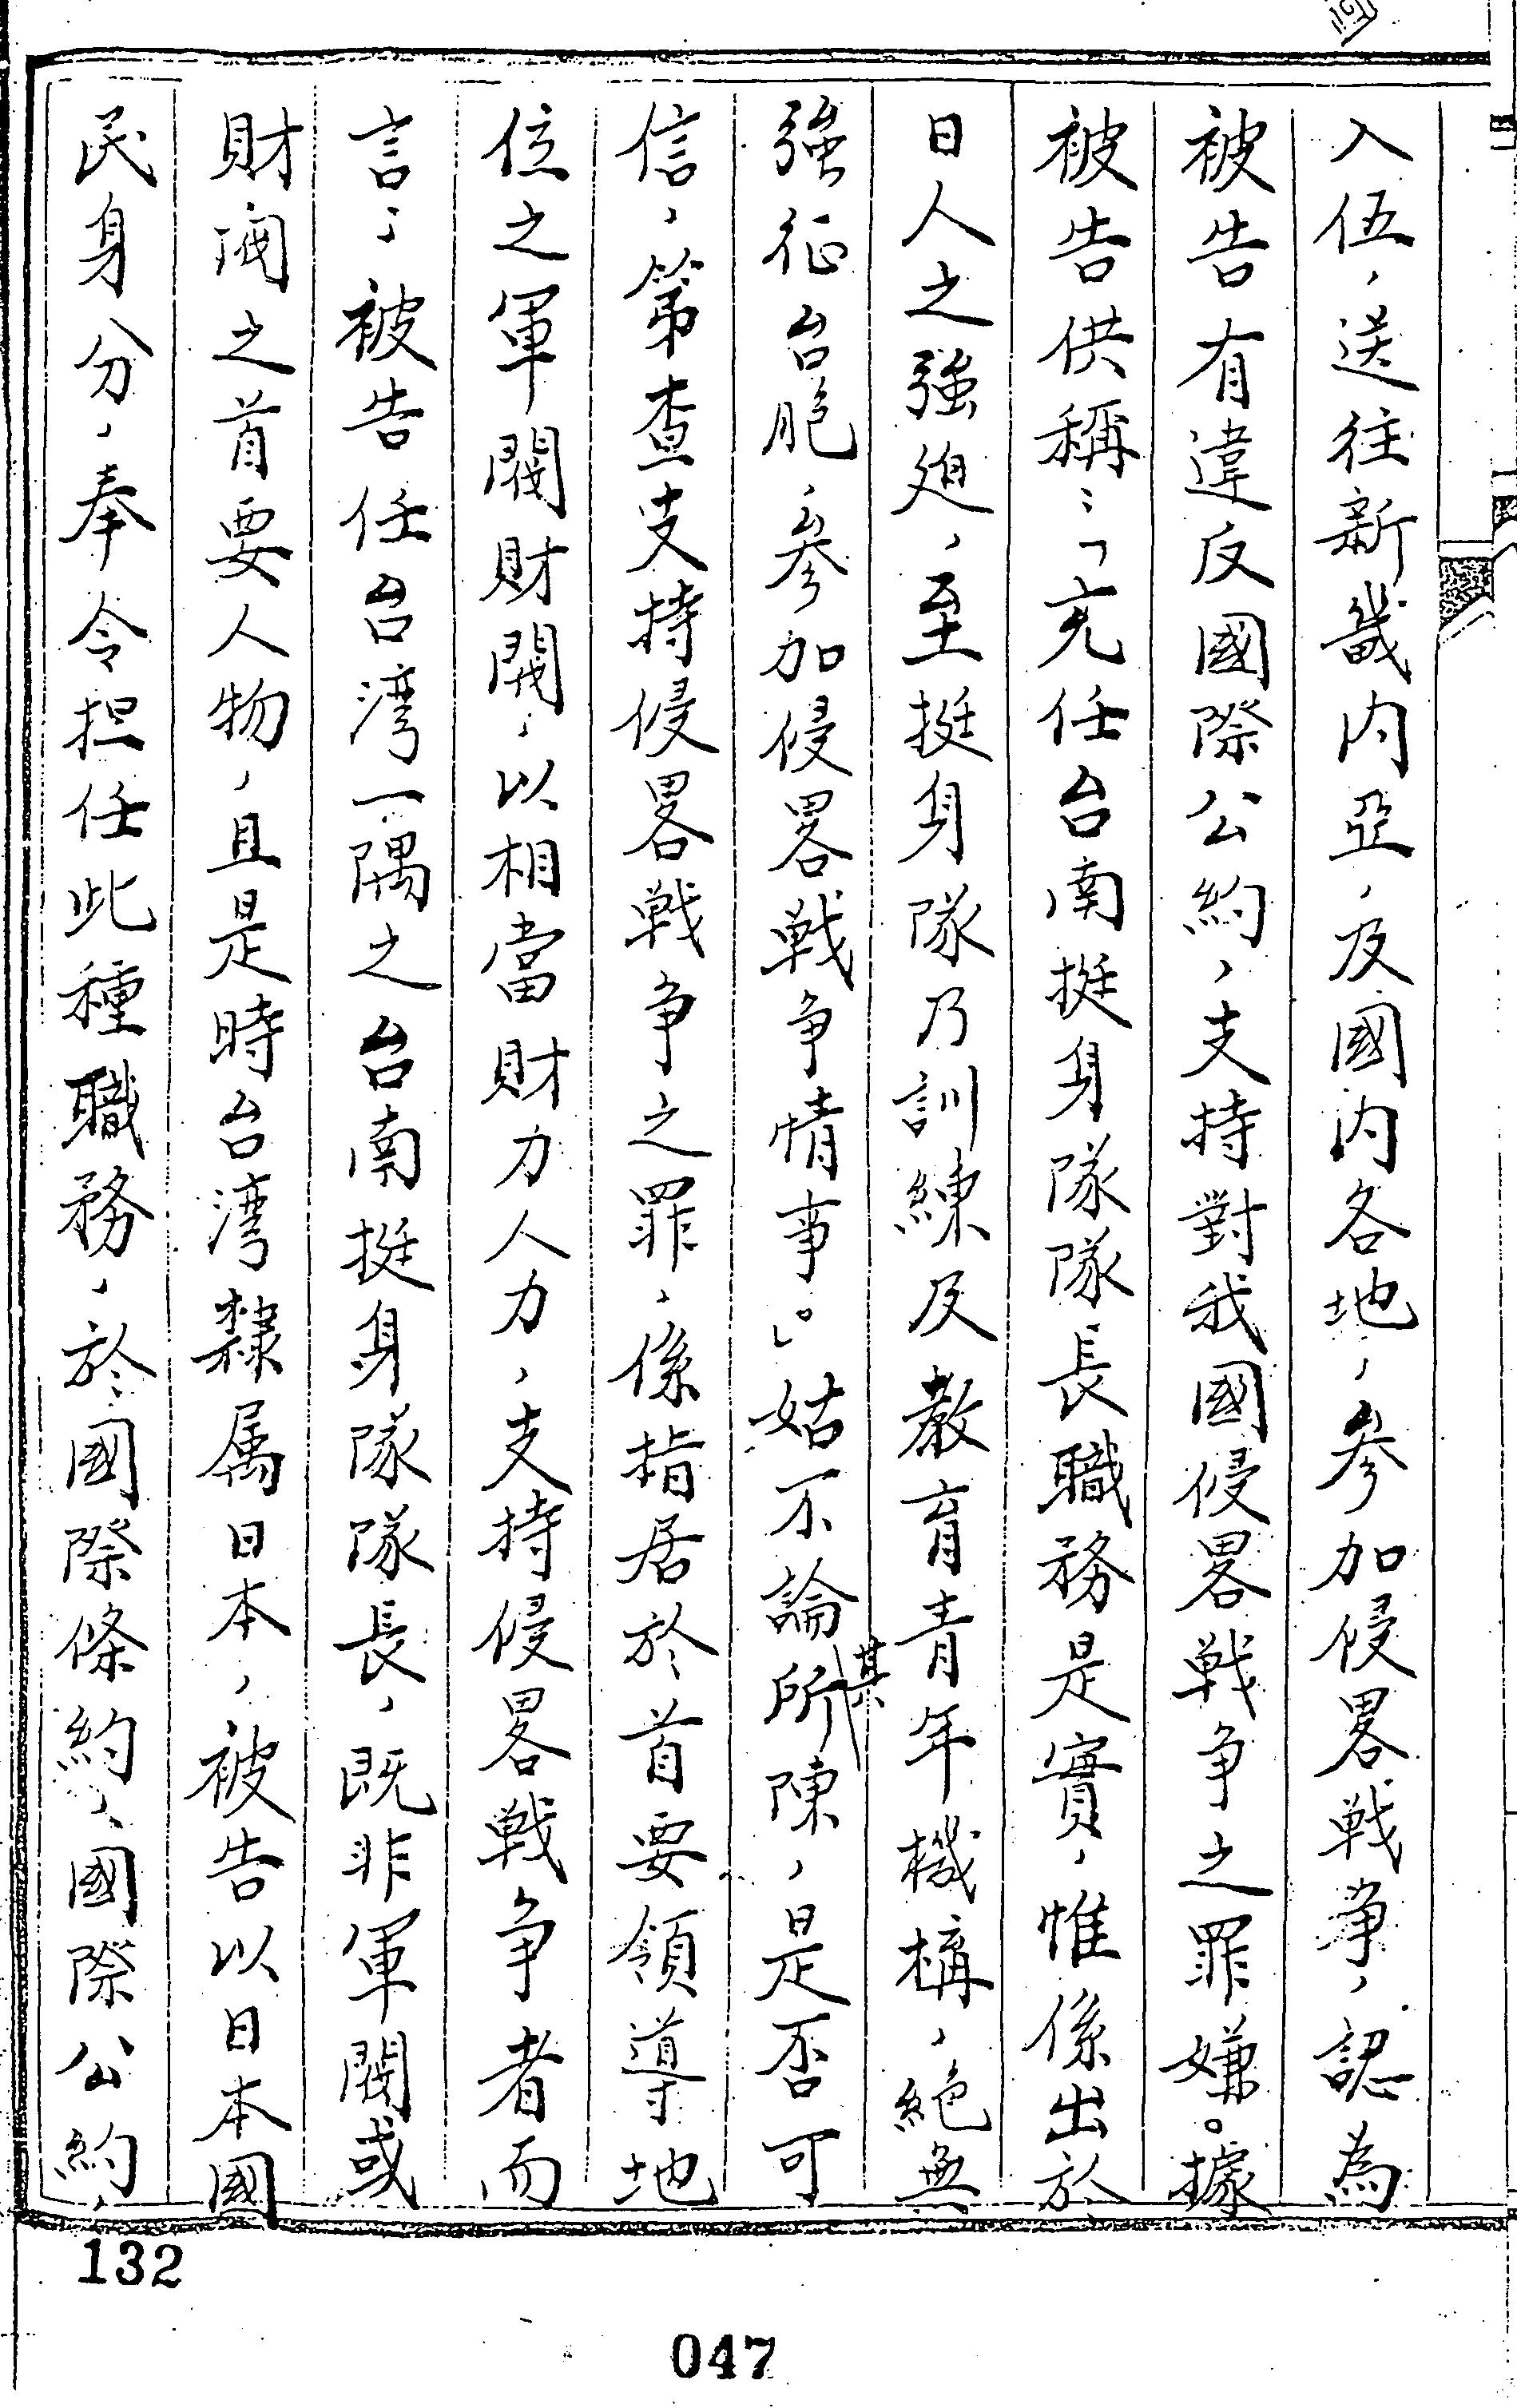 入伍，送往新畿内亞，及國内各地，参加侵畧戦争，認為
被告有違反國際公約，支持對我國侵畧戦争之罪嫌。據
被告供稱：「充任台南挺身隊隊長職務是實，惟係出於
日人之強廹，至挺身隊乃訓練及教育青年機構，絶無
強征台胞，參加侵畧戦争情事。」姑不論其所陳，是否可
信，第查支持侵畧戦争之罪，係指居於首要領導地
位之軍閥財閥，以相當財力人力，支持侵畧戦争者而
言，被告任台湾一隅之台南挺身隊隊長，既非軍閥或
財閥之首要人物，且是時台湾隸属日本，被告以日本國
民身分，奉令担任此種職務，於國際條約、國際公約，
132
047